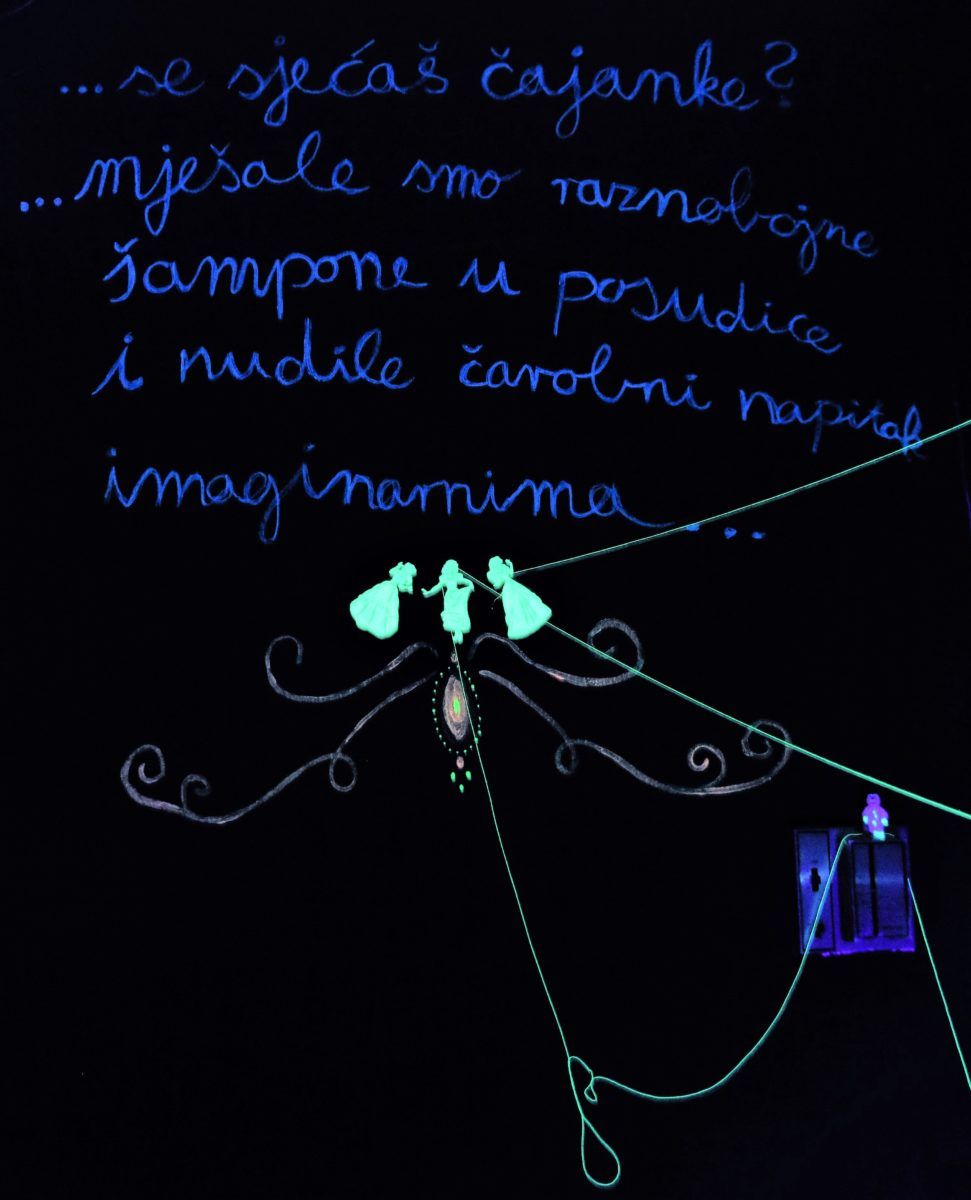 ...se sjećaš čajanke?
...mješale smo raznobojne
šampone u posudice
i nudile čarobni napitak
imaginarnima...